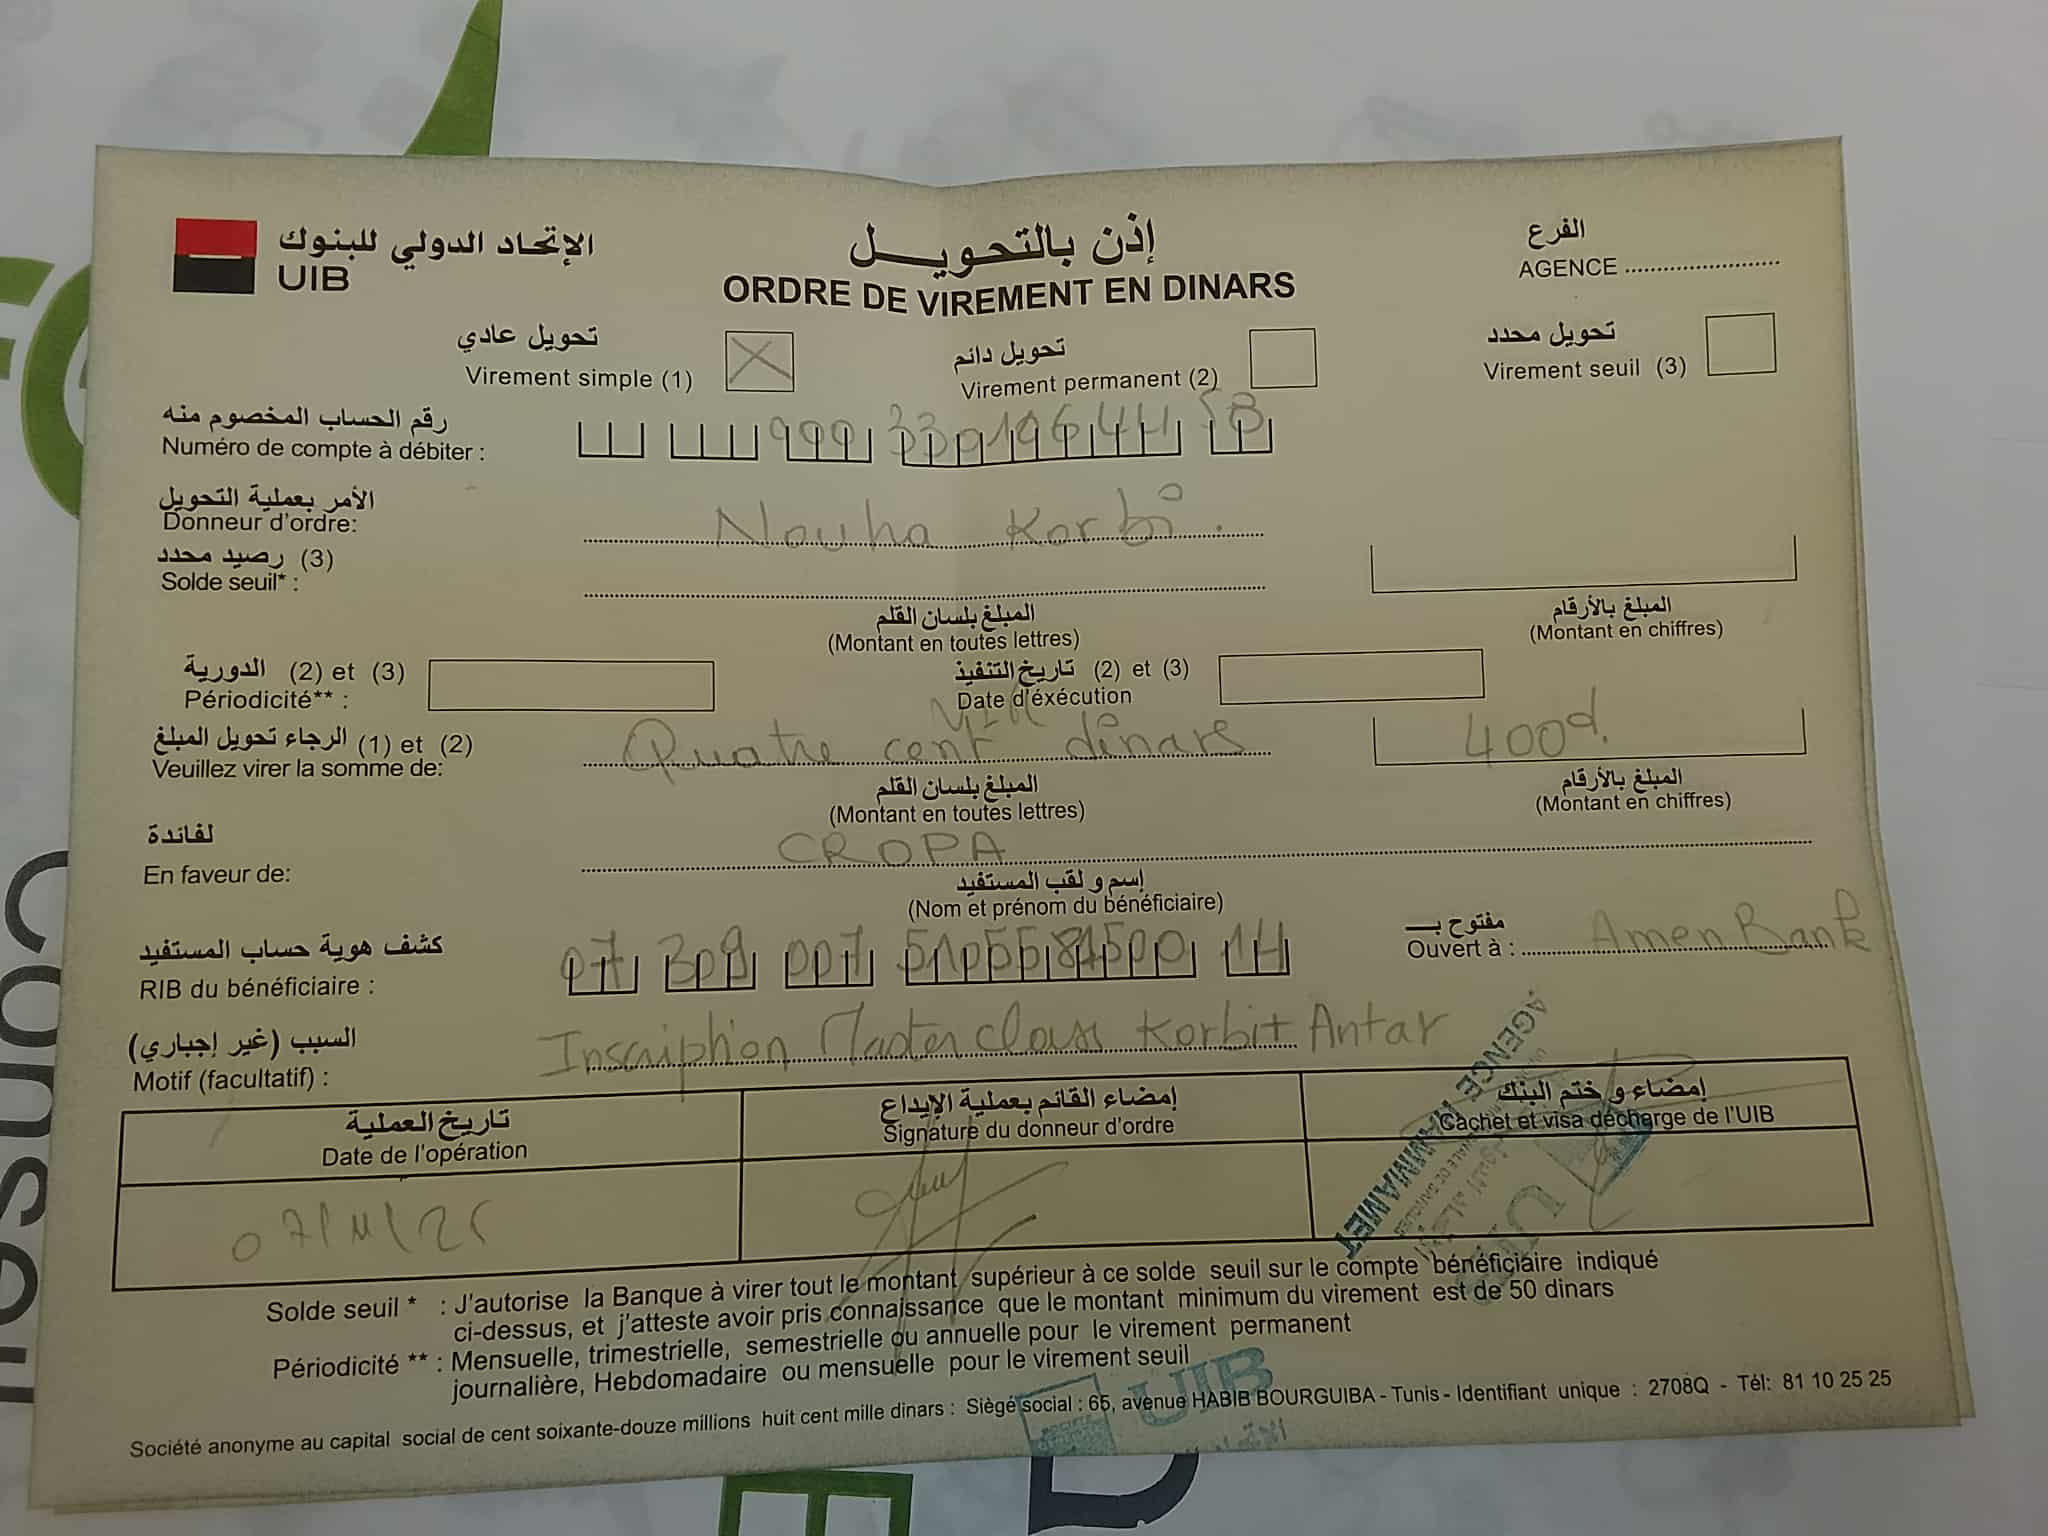 الإتحاد الدولي للبنوك
UIB
إذن بالتحويل
ORDRE DE VIREMENT EN DINARS
الفرع
AGENCE
تحويل عادي
Virement simple (1)
تحويل دائم
Virement permanent (2)
تحويل محدد
Virement seuil (3)
رقم الحساب المخصوم منه
Numéro de compte à débiter :
الأمر بعملية التحويل
Donneur d'ordre: Nouha Korbi
(3) رصيد محدد
Solde seuil* :
المبلغ بلسان القلم
(Montant en toutes lettres)
المبلغ بالأرقام
(Montant en chiffres)
الدورية (2) et (3)
Périodicité** :
تاريخ التنفيذ (2) et (3)
Date d'éxécution
الرجاء تحويل المبلغ (1) et (2)
Veuillez virer la somme de: Quatre cent dinars 400d.
المبلغ بلسان القلم
(Montant en toutes lettres)
المبلغ بالأرقام
(Montant en chiffres)
لفائدة
En faveur de: CROPA
إسم و لقب المستفيد
(Nom et prénom du bénéficiaire)
كشف هوية حساب المستفيد
RIB du bénéficiaire : 07 309 007 5105581500 14
مفتوح بـ
Ouvert à : Amen Bank
السبب (غير إجباري)
Motif (facultatif) : Inscription Master class Korbit Antar
تاريخ العملية
Date de l'opération
إمضاء القائم بعملية الإيداع
Signature du donneur d'ordre
إمضاء و ختم البنك
Cachet et visa décharge de l'UIB
07/11/25
AGENCE HAMMAMET
UIB
Solde seuil * : J'autorise la Banque à virer tout le montant supérieur à ce solde seuil sur le compte bénéficiaire indiqué
ci-dessus, et j'atteste avoir pris connaissance que le montant minimum du virement est de 50 dinars
Périodicité ** : Mensuelle, trimestrielle, semestrielle ou annuelle pour le virement permanent
journalière, Hebdomadaire ou mensuelle pour le virement seuil
UIB
Société anonyme au capital social de cent soixante-douze millions huit cent mille dinars : Siégé social : 65, avenue HABIB BOURGUIBA - Tunis - Identifiant unique : 2708Q - Tél: 81 10 25 25